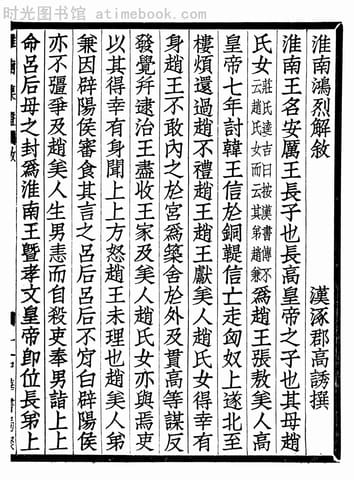 时光图书馆 www.atimebook.com
淮南鴻烈解敘
漢涿郡高誘撰
淮南王名安厲王長子也長高皇帝之子也其母趙
氏女莊氏逵吉曰按漢書傳不云趙氏女而云其弟趙兼爲趙王張敖美人高
皇帝七年討韓王信於銅鞮信亡走匈奴上遂北至
樓煩還過趙不禮趙王趙王獻美人趙氏女得幸有
身趙王不敢內之於宮爲築舍於外及貫高等謀反
發覺幷逮治王盡收王家及美人趙氏女亦與焉吏
以其得幸有身聞上上方怒趙王未理也趙美人弟
兼因辟陽侯審食其言之呂后呂后不肎白辟陽侯
亦不彊爭及趙美人生男恚而自殺吏奉男詣上上
命呂后母之封爲淮南王曁孝文皇帝卽位長弟上